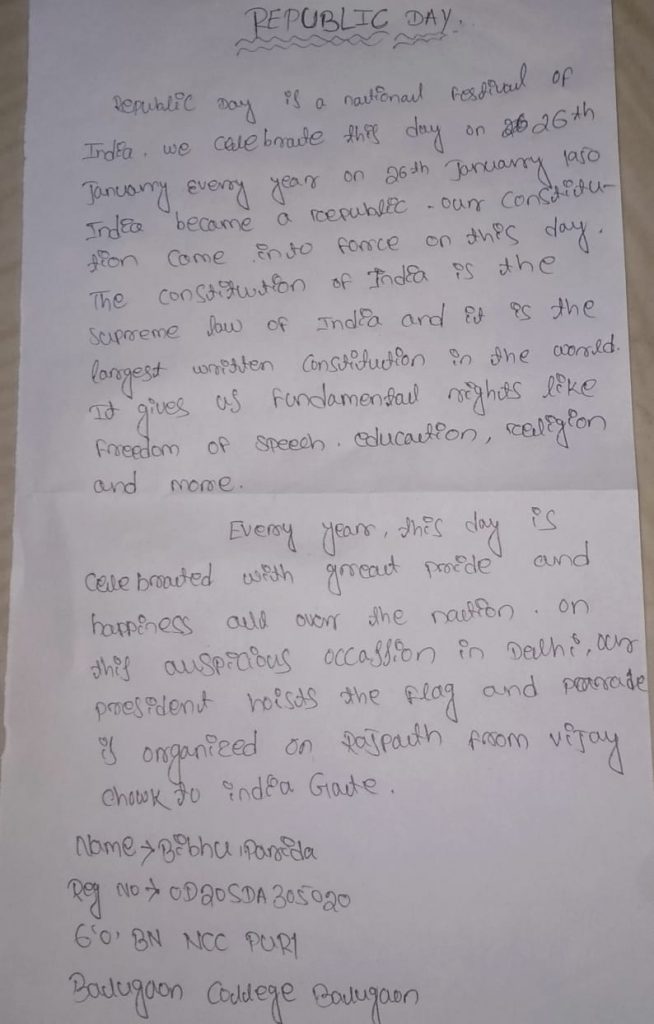 REPUBLIC DAY.
Republic Day is a national festival of
India. we celebrate this day on 26th
January every year on 26th January 1950
India became a republic. our constitu-
tion come into force on this day.
The constitution of India is the
supreme law of India and it is the
largest written constitution in the world.
It gives us fundamental rights like
freedom of speech. education, religion
and more.
Every year, this day is
celebrated with great pride and
happiness all over the nation. on
this auspicious occassion in Delhi, our
president hoists the flag and parade
is organized on Rajpath from vijay
chowk to india Gate.
Name → Bibhu Parida
Reg No → OD20SDA305020
6'0' BN NCC PURI
Balugaon College Balugaon